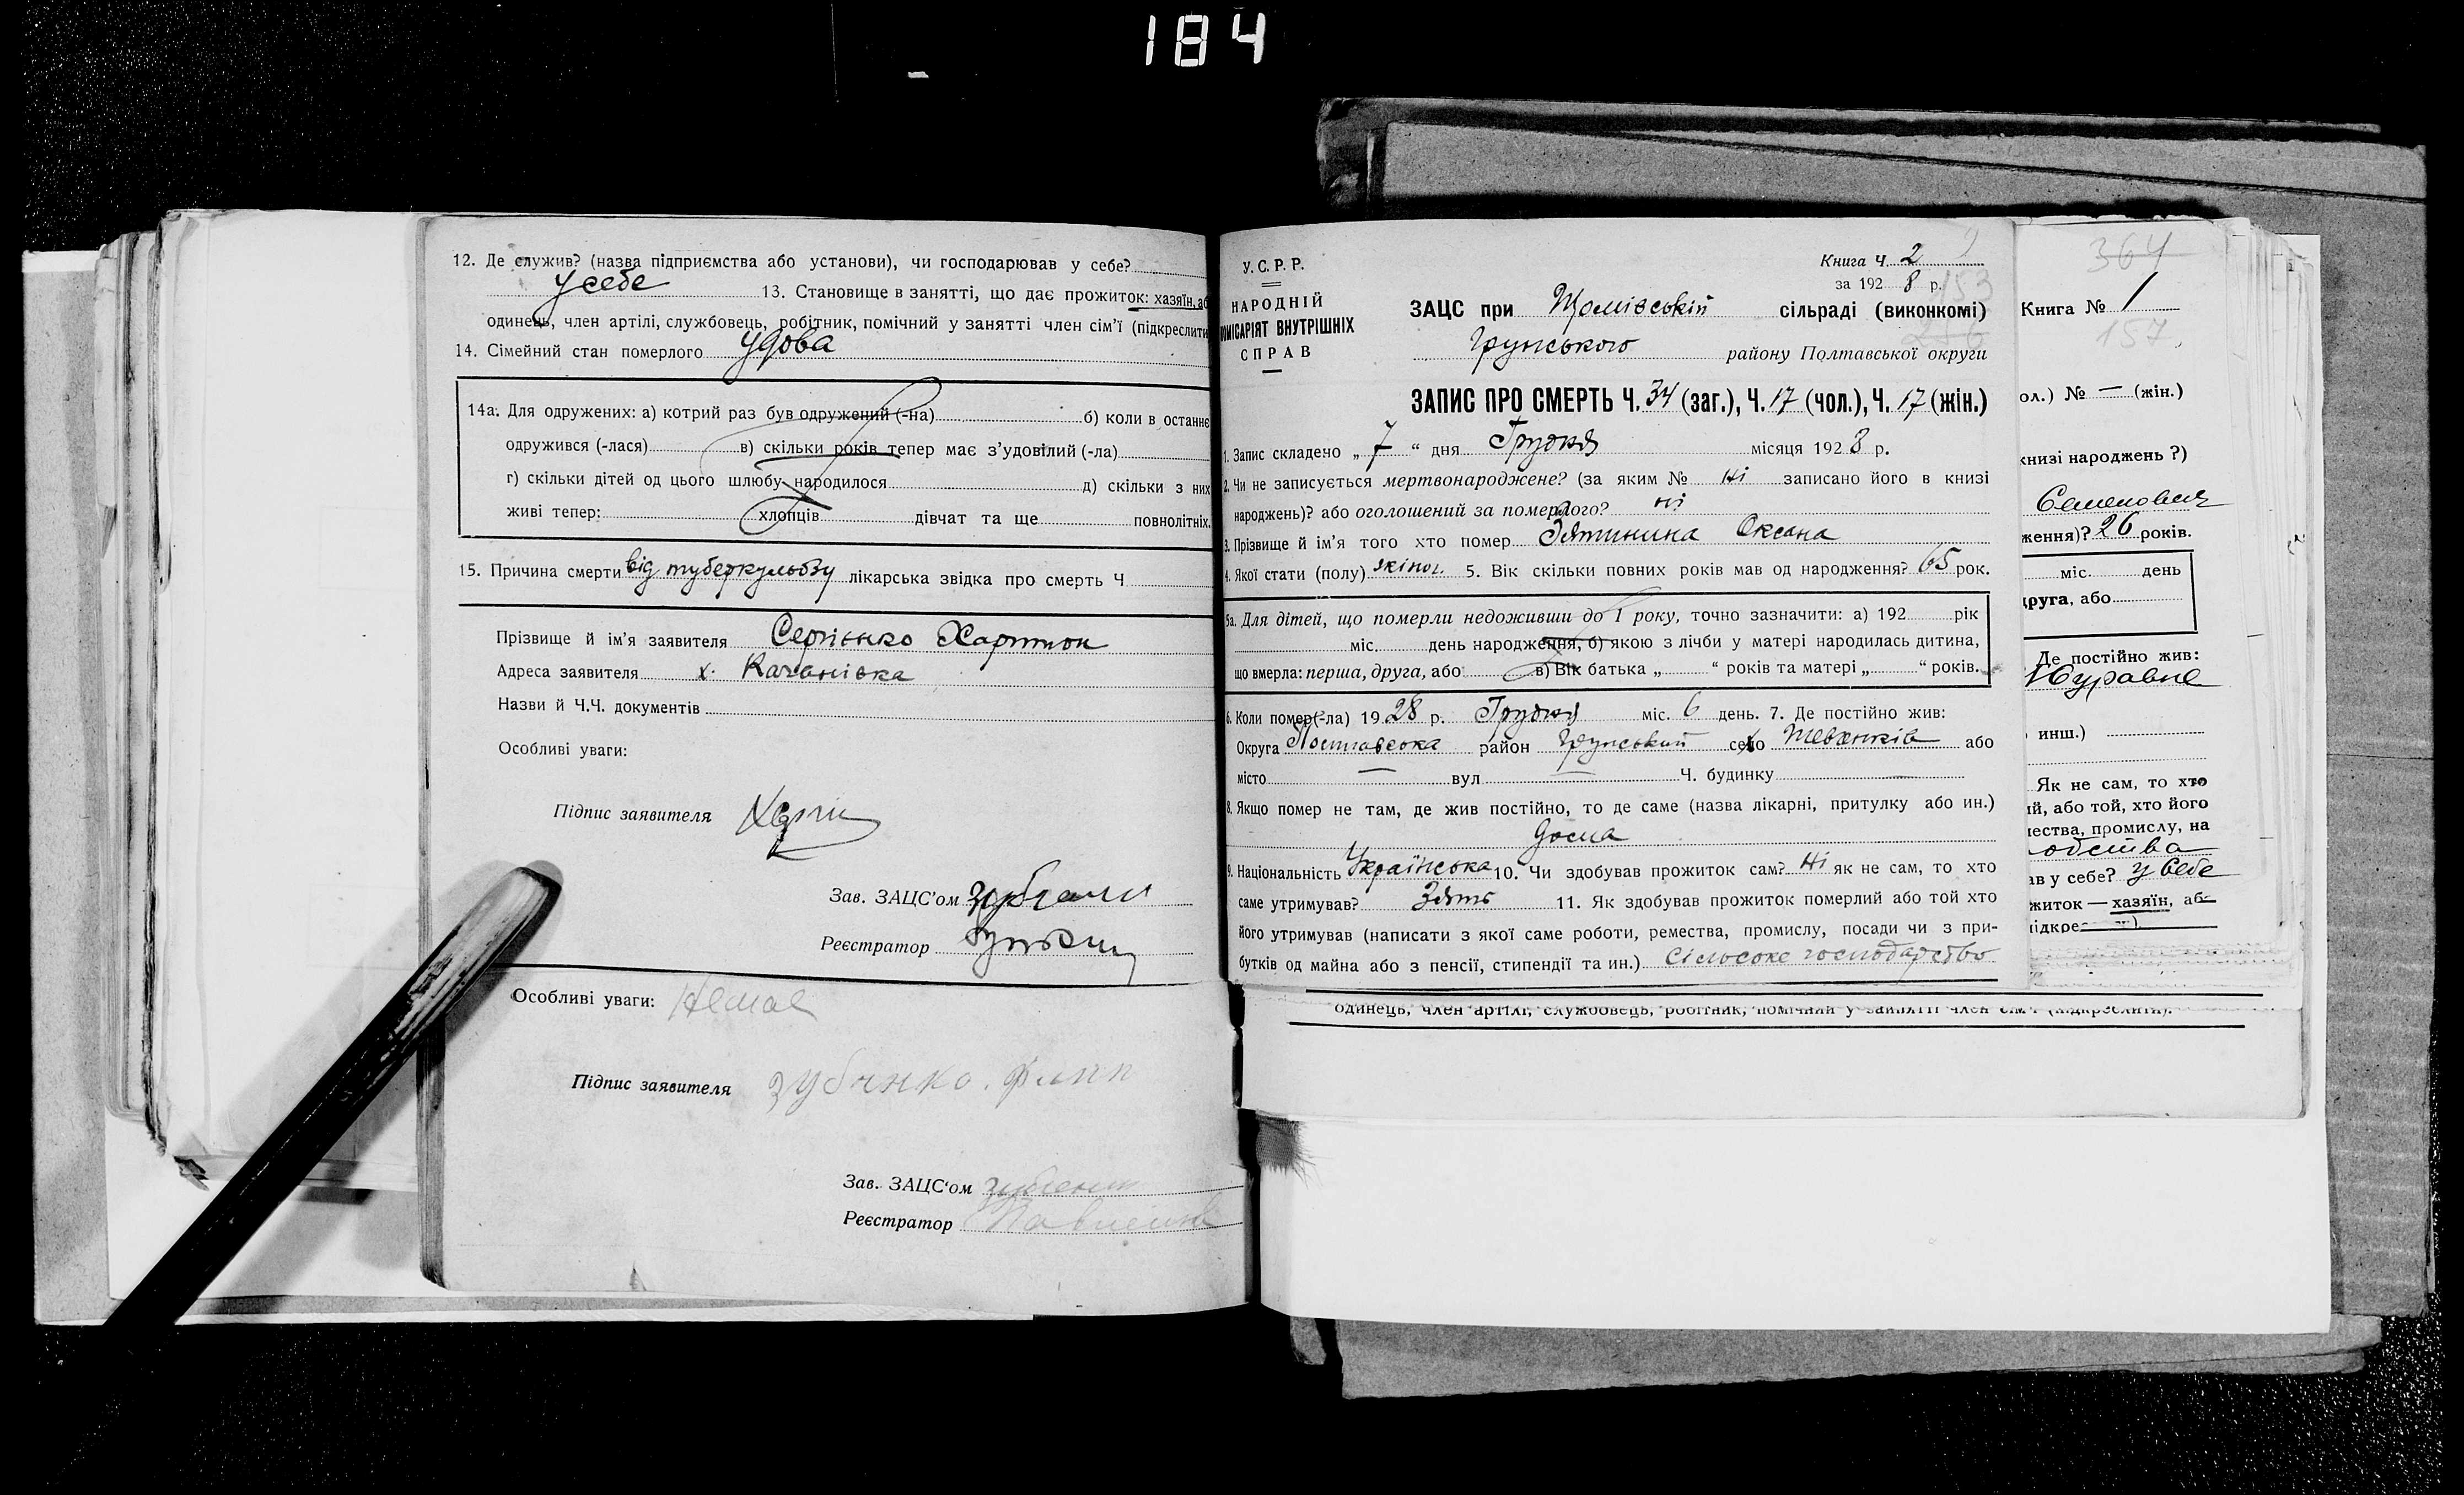 184
12. Де служив? (назва підприємства або установи), чи господарював у себе?
у себе 13. Становище в занятті, що дає прожиток: хазяїн, аб
одинець, член артілі, службовець, робітник, помічний у занятті член сім'ї (підкреслити
14. Сімейний стан померлого удова
14а. Для одружених: а) котрий раз був одружений (-на) б) коли в останнє
одружився (-лася) в) скільки років тепер має з'удовілий (-ла)
г) скільки дітей од цього шлюбу народилося д) скільки з них
живі тепер: хлопців дівчат та ще повнолітніх.
15. Причина смерти від туберкульозу лікарська звідка про смерть Ч
Прізвище й ім'я заявителя Сергієнко Харитон
Адреса заявителя х. Качанівка
Назви й Ч.Ч. документів
Особливі уваги:
Підпис заявителя
Зав. ЗАЦС'ом
Реєстратор
Особливі уваги: Немає
Підпис заявителя Зубенко
Зав. ЗАЦС'ом
Реєстратор
У. С. Р. Р.
НАРОДНІЙ
ОМІСАРІЯТ ВНУТРІШНІХ
СПРАВ
Книга Ч. 2
за 1928 р.
153
ЗАЦС при сільраді (виконкомі)
Грунського району Полтавської округи
ЗАПИС ПРО СМЕРТЬ Ч. 34 (заг.), Ч. 17 (чол.), Ч. 17 (жін.)
1. Запис складено „ 7 “ дня Грудня місяця 1928 р.
2. Чи не записується мертвонароджене? (за яким № ні записано його в книзі
народжень)? або оголошений за померлого? ні
3. Прізвище й ім'я того хто помер Оксана
4. Якої стати (полу) жіноч. 5. Вік скільки повних років мав од народження? 65 рок.
5а. Для дітей, що померли недоживши до 1 року, точно зазначити: а) 192 рік
міс. день народження, б) якою з лічби у матері народилась дитина,
що вмерла: перша, друга, або в) Вік батька „ “ років та матері „ “ років.
6. Коли помер(-ла) 1928 р. Грудня міс. 6 день. 7. Де постійно жив:
Округа Полтавська район Грунський село або
місто — вул — Ч. будинку
8. Якщо помер не там, де жив постійно, то де саме (назва лікарні, притулку або ин.)
дома
9. Національність Українська 10. Чи здобував прожиток сам? Ні як не сам, то хто
саме утримував? Зять 11. Як здобував прожиток померлий або той хто
його утримував (написати з якої саме роботи, ремества, промислу, посади чи з при-
бутків од майна або з пенсії, стипендії та ин.) Сільське господарство
одинець, член артілі, службовець, робітник, помічний у занятті член сім'ї (підкреслити).
364
Книга № 1
157
ол.) № — (жін.)
книзі народжень ?)
Семенович
ження)? 26 років.
міс. день
друга, або
Де постійно жив:
инш.)
Як не сам, то хто
ий, або той, хто його
мества, промислу, на
ав у себе? у себе
житок — хазяїн, аб-